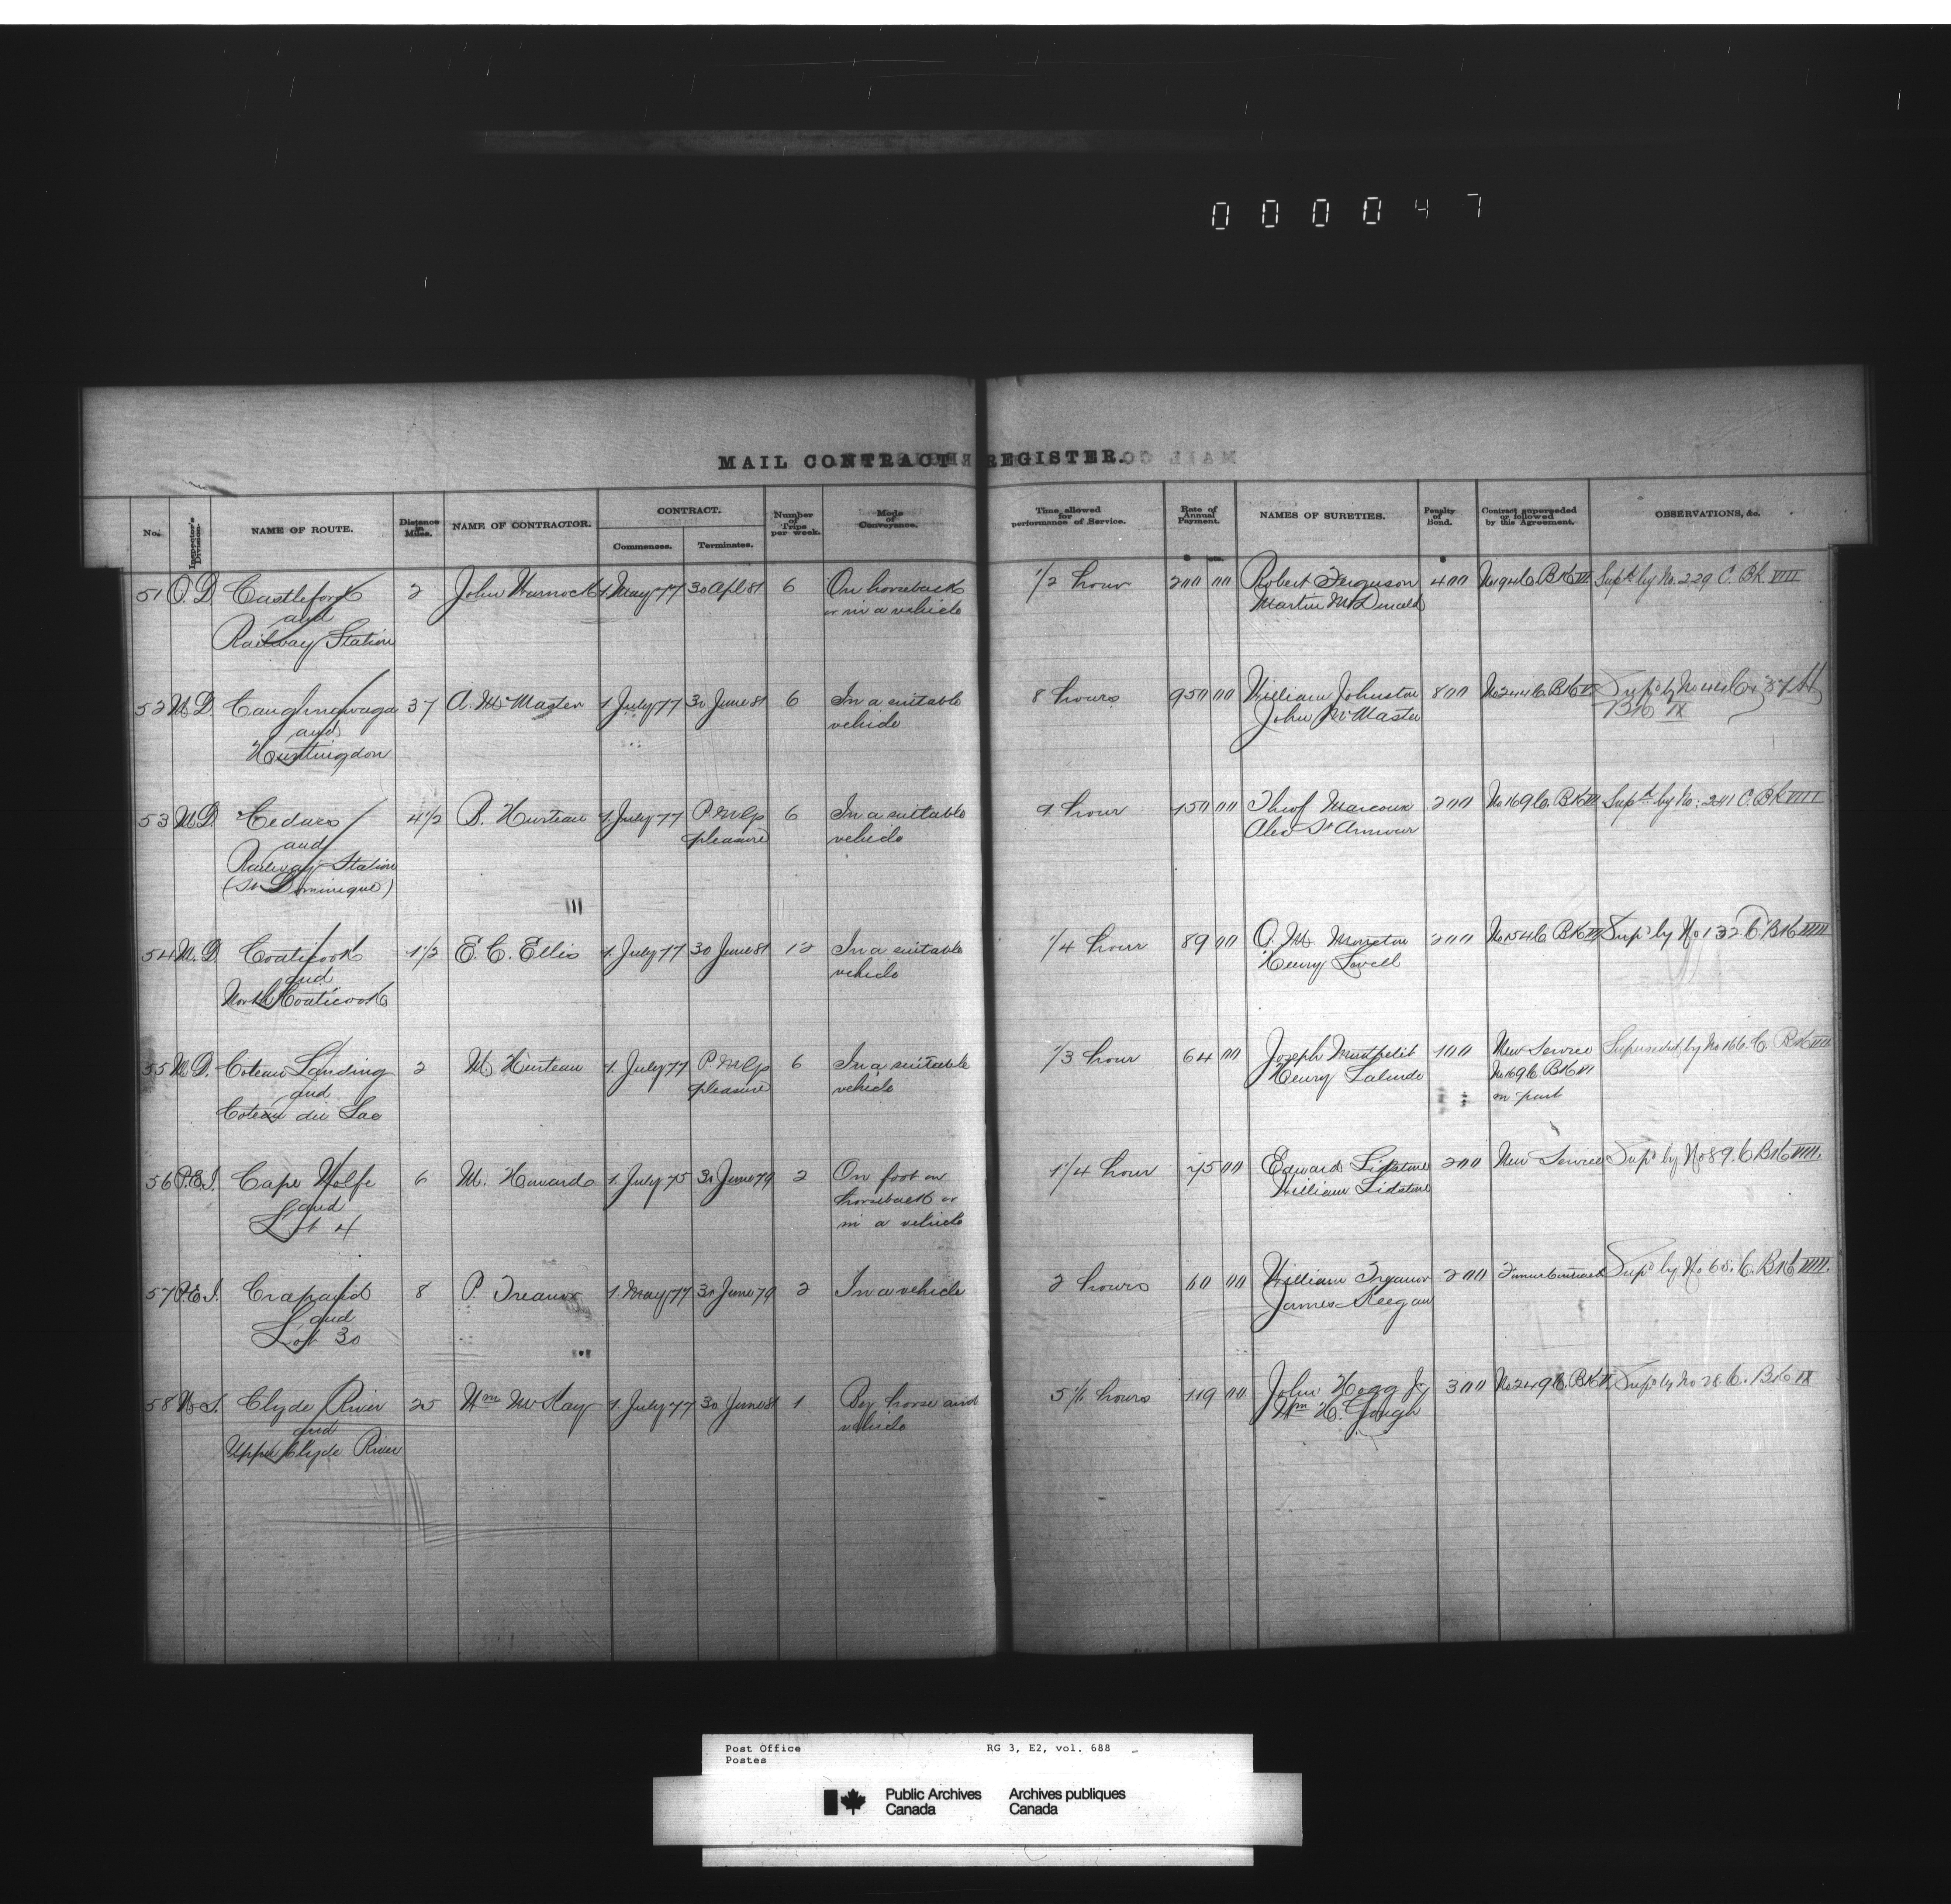 000047
MAIL CONTRACT REGISTER.
No. Inspector's Division. NAME OF ROUTE. Distance in Miles. NAME OF CONTRACTOR. CONTRACT. Commences. Terminates. Number of Trips per week. Mode of Conveyance. Time allowed for performance of Service. Rate of Annual Payment. NAMES OF SURETIES. Penalty of Bond. Contract superseded or followed by this Agreement. OBSERVATIONS, &c.
$ cts. $
51 O.D. Castleford 2 John Warnock 1 May 77 30 Apl 81 6 On horseback 1/2 hour 200 00 Robert Ferguson 400 No 194 C. BK VI Supd by No. 229 C. BK VIII
and or in a vehicle Martin McDonald
Railway Station
52 M.D. Caughnawaga 37 A. McMaster 1 July 77 30 June 81 6 In a suitable 8 hours 950 00 William Johnston 800 No 244 C. BK VI Supd by No 44 C
and vehicle John McMaster BK IX
Huntingdon
53 M.D. Cedars 4 1/2 P. Hurteau 1 July 77 P.M.G's 6 In a suitable hour 150 00 Marcoux 200 No 169 C. BK VI Supd by No. 241 C. BK VIII
and pleasure vehicle Alex St Amour
Railway Station
(St Dominique)
54 M.D. Coaticook 1 1/2 E. C. Ellis 1 July 77 30 June 81 12 In a suitable 1/4 hour 89 00 O. M. 200 No 154 C BK VI Supd by No 132 C BK VIII
and vehicle Henry Lovell
North Coaticook
55 M.D. Coteau Landing 2 M. Hurteau 1 July 77 P.M.G's 6 In a suitable 1/3 hour 64 00 Joseph 100 New Service Superseded by No 166 C. BK VIII
and pleasure vehicle Henry Lalonde No 169 C. BK VI
Coteau du Lac in part
56 P.E.I. Cape Wolfe 6 M. Howard 1 July 75 30 June 79 2 On foot or 1 1/4 hour 75 00 Edward Lidstone 200 New Service Supd by No 89. C BK VIII.
and horseback or William Lidstone
Lot 4 in a vehicle
57 P.E.I. Crapaud 8 P. Treanor 1 May 77 30 June 79 2 In a vehicle 2 hours 60 00 William Treanor 200 Former Contract Supd by No 68. C. BK VIII.
and James Keegan
Lot 30
58 N.S. Clyde River 25 Wm McKay 1 July 77 30 June 81 1 By horse and 5 hours 119 00 John Hogg Jr 300 No 249 C. BK VI Supd by No 28 C. BK IX
and vehicle Wm H. Gough
Upper Clyde River
Post Office RG 3, E2, vol. 688
Postes
Public Archives Archives publiques
Canada Canada